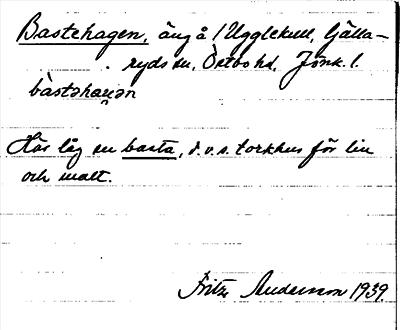 Bastehagen, äng å /Ugglekull, Gjälla-
ryds sn, Östbo hd, Jönk. l.
bàstəhaɡən
Här låg en basta, d.v.s. torkhus för lin
och malt.
Fritz Anderson 1939.